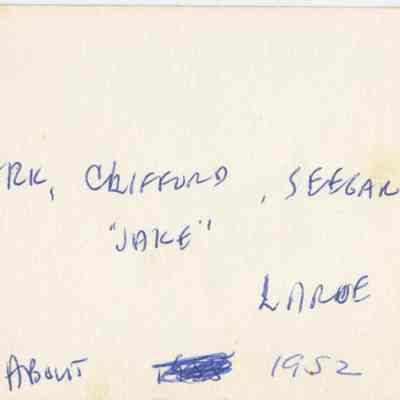 RK, CLIFFORD, SEEGAR
"JAKE"
LAROE
ABOUT 1952